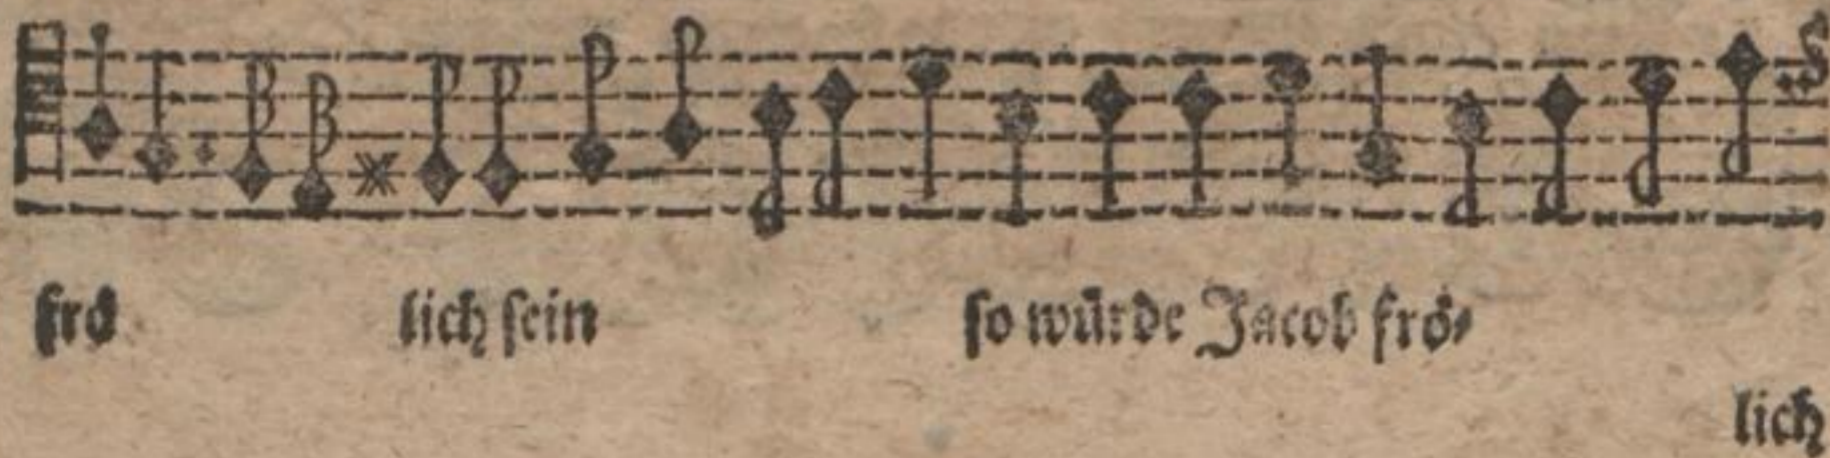 frö lich sein so würde Jacob frö⸗
lich